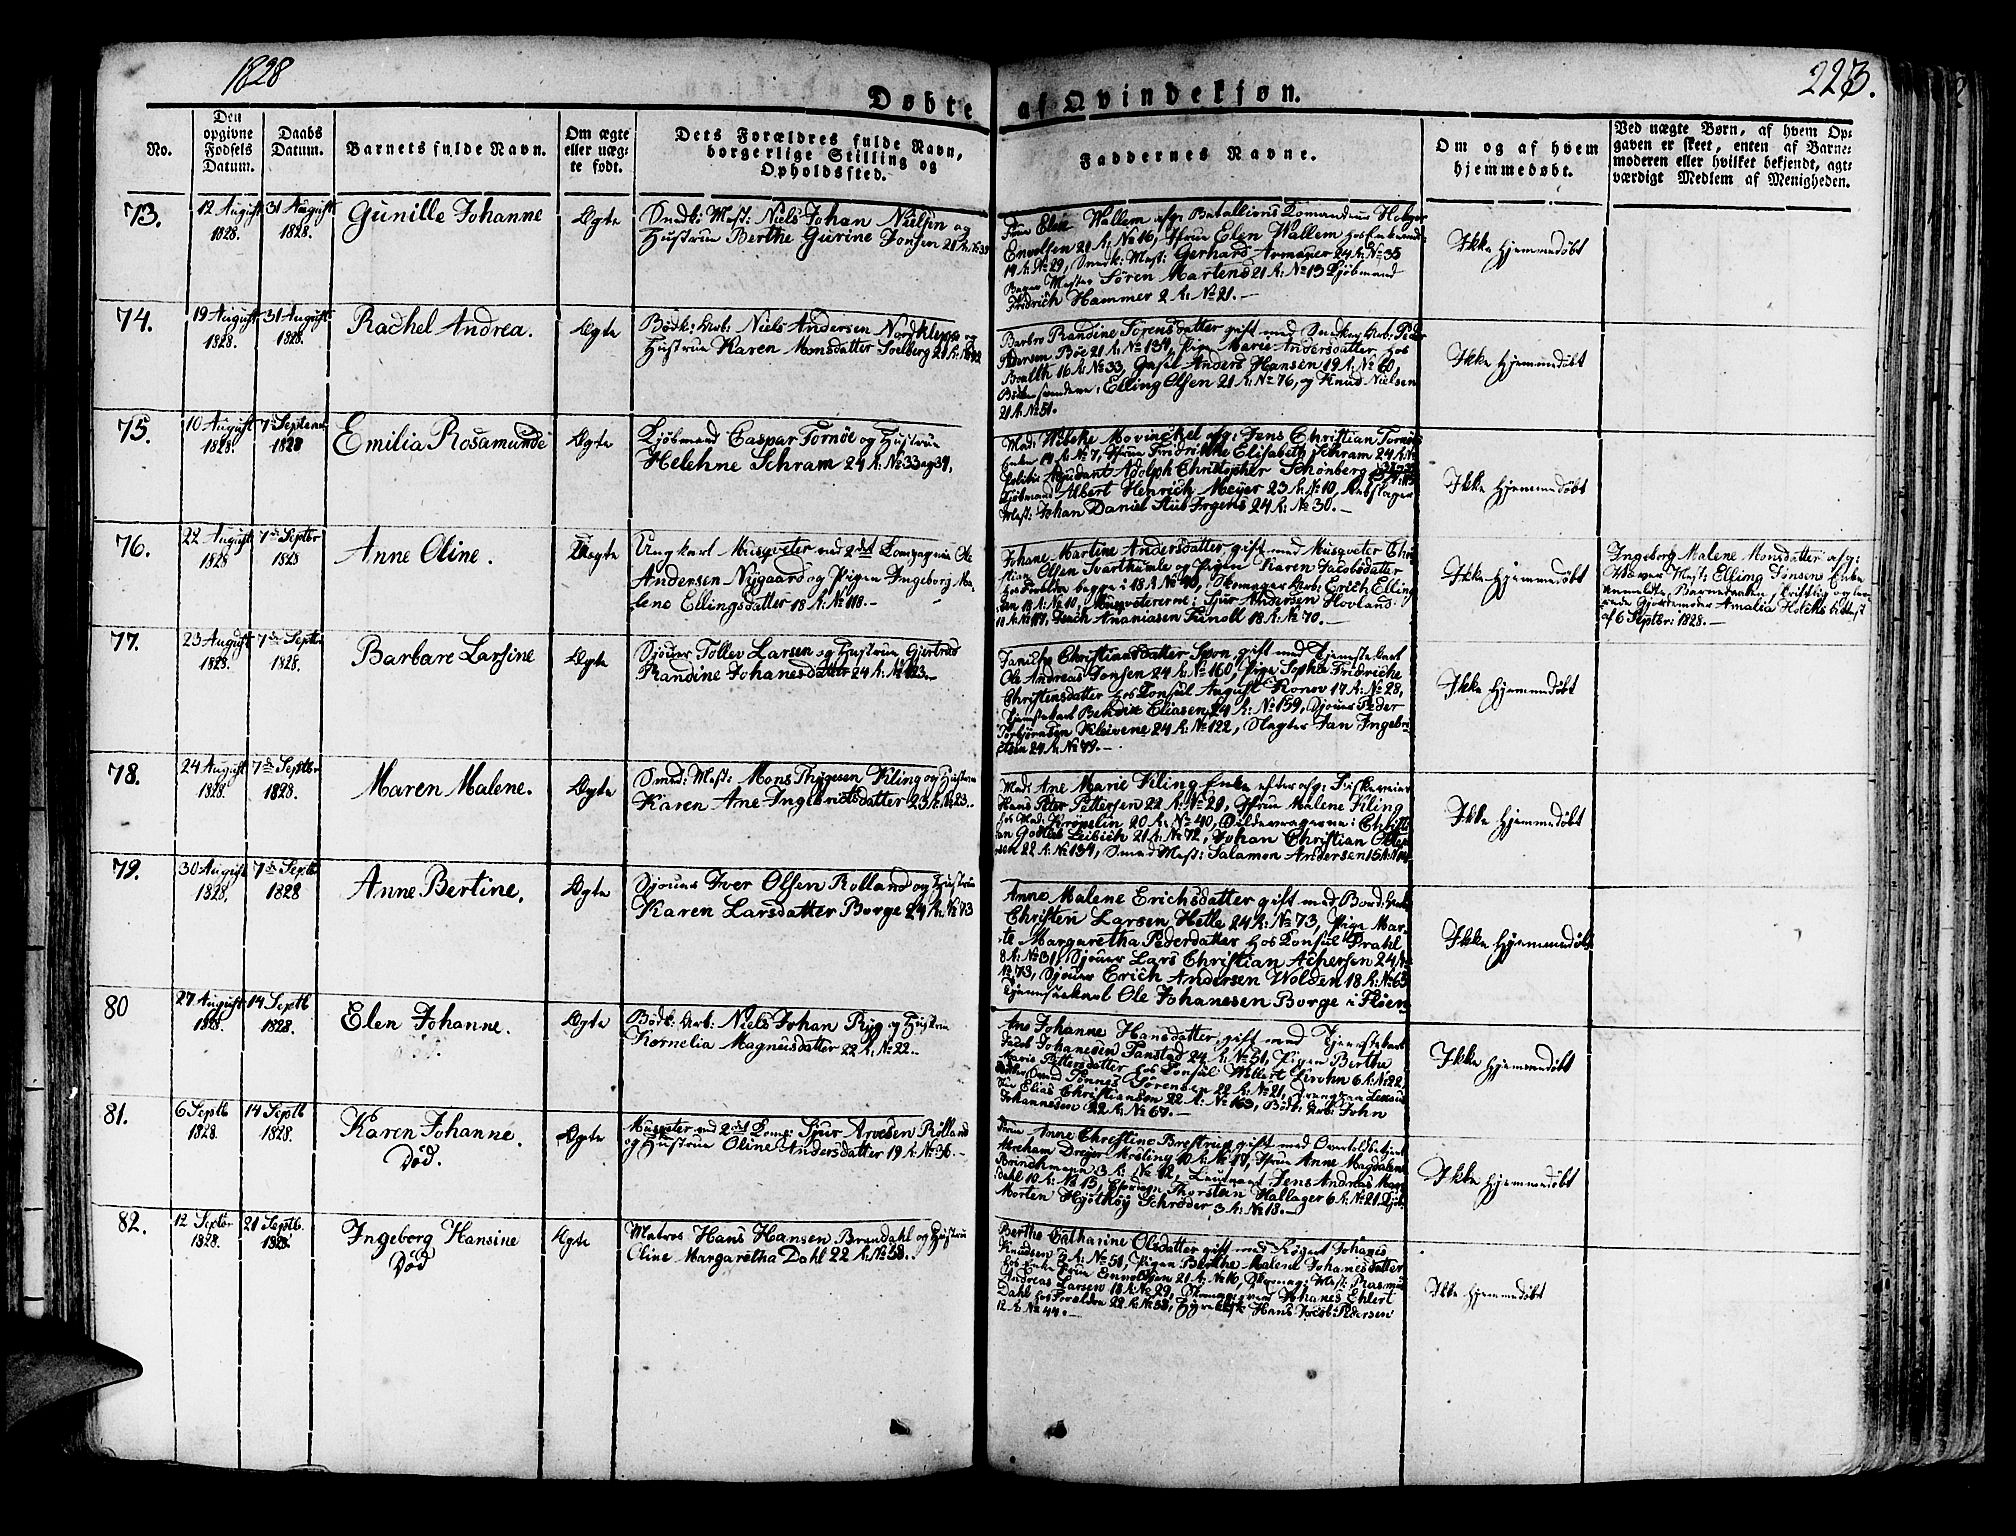 1828
223.
Døbte af Qvindekjøn.
No.
Den opgivne Fødsels Datum.
Daabs Datum.
Barnets fulde Navn.
Om ægte eller uægte født.
Dets Forældres fulde Navn, borgerlige Stilling og Opholdssted.
Faddernes Navne.
Om og af hvem hjemmedøbt.
Ved uægte Børn, af hvem Opgaven er skeet, enten af Barnemoderen eller hvilket bekjendt, agtværdigt Medlem af Menigheden.
73.
12 August 1828.
31 August 1828.
Gunille Johanne
Ægte
Snedk: Mest: Niels Johan Nielsen og
Hustrue Berthe Gurine Jonsen 21 R:
Wallem afg: Batallions Comandeur Holger
Envolsen 21 R: No 16, Jfrue Elen Wallem
19 R: No 29, Snedk: Mest: Gerhard Armauer 24 R: No 35
Bager Mester Sören Martens 21 R: No 13 Kjöbmand
Fridrich Hammer 2 R: No 21.
Ikke hjemmedøbt
74.
19 August 1828.
31 August 1828.
Rachel Andrea.
Ægte
Bödk: Arb: Niels Andersen Nordkleppe og
Hustrue Karen Monsdatter Solberg 21 R:
Barbro Randine Sörensdatter gift med Snedker Arb: Peder
Pedersen Böe 21 R: No 134, Pige Marie Andersdatter hos
16 R: No 33, Anders Hansen 19 R: No 60,
Bödkersvendene: Elling Olsen 21 R: No 76, og Knud Nielsen
21 R: No 51.
Ikke hjemmedøbt
75.
10 August 1828.
7de Septemb 1828
Emilia Rosamunde
Ægte
Kjöbmand Caspar Tornöe og Hustrue
Helehne Schram 24 R: No 33 og 34,
Mad: Wibeke Movinckel afg: Jens Christian Tornöes
Enke 14 R: No 7, Jfrue Fridrikke Elisabeth Schram 24 R:
Politie Adjudant Adolph Christopher Schönberg
Kjöbmand Albert Henrich Meyer 23 R: No 10,
Mest: Johan Daniel Stub Irgens 24 R: No 30.
Ikke hjemmedøbt
76.
22 August 1828
7de Septbr 1828
Anne Oline.
Uægte
Ungkarl Musqveter ved 2det Compagnie Ole
Andersen Nygaard og Pigen Ingeborg Malene
Ellingsdatter 18 R: No 118.
Johane Martine Andersdatter gift med Musqveter Christian
Olsen Svarthumle og Pigen Karen Jacobsdatter
hos Forældre begge i 18 R: No 40, Skomager Arb: Erich Ellingsen
18 R: No 10, Musqvetererne: Sjur Andersen Hovland
Ananiasen Knoll 18 R: No 70.
Ikke hjemmedøbt
Ingeborg Malene Monsdatter afg:
Mest: Elling Jonsens Enke
anmeldte Barnedaaben, skriftlig
Gjordemoder Amalia Holcks Attest
af 6 Septbr: 1828.
77.
23 August 1828.
7de Septbr 1828.
Barbare Larsine
Ægte
Sjouer Tollev Larsen og Hustrue Gjertrud
Randine Johanesdatter 24 R: No 123.
Christiansdatter Svon, gift med Tjenestekarl
Ole Andreas Jonsen 24 R: No 160, Pige Sophia Fridricke
Christensdatter hos Konsul August Konov 17 R: No 28,
Tjenestekarl Bendix Eliasen 24 R: No 159, Sjouer Peder
Torbjörnsen Kleivene 24 R: No 122, Slagter Jan Ingebrigtsen
24 R: No 49.
Ikke hjemmedøbt
78.
24 August 1828.
7de Septbr 1828.
Maren Malene.
Ægte
Smed: Mest: Mons Thygesen Kling og Hustrue
Karen Ane Ingebrictsdatter 23 R: No 23.
Mad: Ane Marie Kling Enke efter afg:
Hans Peter Pettersen 22 R: No 29, Jfrue Malene Kling
hos Mad: Kröpelin 20 R: No 40, Christian
Gotlieb Leibich 21 R: No 72, Johan Christian
22 R: No 134, Smed Mest: Salamon Andersen 15 R:
Ikke hjemmedøbt
79.
30 August 1828.
7de Septb 1828
Anne Bertine.
Ægte
Sjouer Iver Olsen Rolland og Hustrue
Karen Larsdatter Borge 24 R: No 73
Anne Malene Erichsdatter gift med
Christen Larsen Hetle 24 R: No 73, Pige Marte
Margaretha Pedersdatter hos Konsul Prahl
8 R: No 31, Sjouer Lars Christian Achersen 24 R:
No 73, Sjouer Erich Andersen Wolden 18 R: No 63
Tjenestekarl Ole Johanesen Borge i Fløen
Ikke hjemmedøbt
80
27 August 1828.
14 Septb 1828.
Elen Johanne.
Ægte
Bödk: Arb: Niels Johan Ryg og Hustrue
Kornelia Magnusdatter 22 R: No 22.
Ane Johanne Hansdatter, gift med Tjenestekarl
Jacob Johanesen Tanstad 24 R: No 51, Pigen Berthe
Marie Pettersdatter hos Konsul Willert Krohn 6 R: No 22,
Tönnes Sörensen 22 R: No 21,
Elias Christiansen 22 R: No 163, Bödk: Arb: John
Johannesen 22 R: No 67.
Ikke hjemmedøbt
81.
6 Septb 1828.
14 Septb 1828.
Karen Johanne.
Död.
Ægte
Musqveter ved 2det Komp: Sjur Arvesen Rolland
og Hustrue Oline Andersdatter 19 R: No 36.
Frue Anne Christine Brestrup gift med
Abraham Dreyer 10 R: No 19, Jfrue Anne Magdalene
Brinchmann 3 R: No 12, Lieutnant Jens Andreas
Dahl 10 R: No 15, Thorsten Hallager 6 R: No 21
Morten Schröder 3 R: No 18.
Ikke hjemmedøbt
82.
12 Septbr 1828.
21 Septb. 1828.
Ingeborg Hansine
Död
Ægte
Matros Hans Hansen Brendahl og Hustrue
Oline Margaretha Dahl 22 R: No 58.
Berthe Catharine Olsdatter gift med Johanes
Knudsen 3 R: No 54, Pigen Berthe Malene Johanesdatter
hos Enke Frue Ennvolsen 21 R: No 16, Skomag: Mest: Rasmus
Andreas Larsen 18 R: No 29, Johanes Ehlert
Dahl hos Forældre 22 R: No 58, Hans Jacob Pedersen
12 R: No 44.
Ikke hjemmedøbt